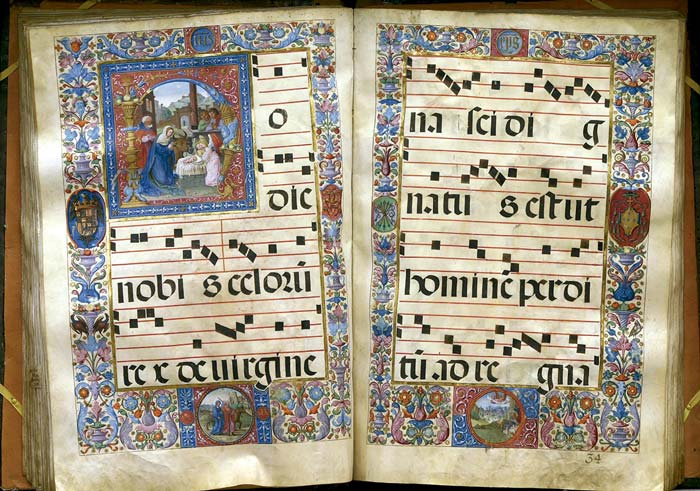 o
dic
nobi s celorū
re x de uirgine
na sci di g
natu s est ut
hominē perdi
tū ad re gna
34